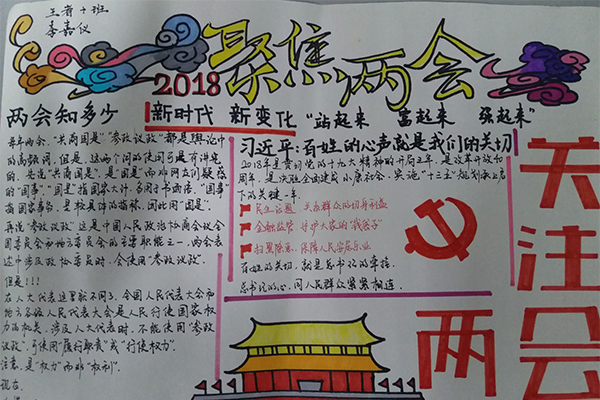 王者十班
李嘉仪
2018聚焦两会
两会知多少
新时代 新变化 "站起来 富起来 强起来"
每年两会，"共商国是""参政议政"都是舆论中
的高频词，但是，这两个词的使用可是有讲究
的。先说"共商国是"，是"国是"而非网友们疑惑
的"国事"。"国是"指国家大计，多用于书面语，"国事"
指国家事务，是较具体的指称，因此用"国是"。
再说"参政议政"这是中国人民政治协商会议全
国委员会和地方委员会的主要职能之一，两会表
述中涉及政协委员时，会使用"参政议政"。
但是!!!
在人大代表这里就不同了，全国人民代表大会和
地方各级人民代表大会是人民行使国家权
力的机关，涉及人大代表时，不能使用"参政
议政"，可使用"履行职责"或"行使权力"。
注意，是"权力"而非"权利"。
现在，
习近平：百姓的心声就是我们的关切
2018年是贯彻党的十九大精神的开局之年，是改革开放40
周年，是决胜全面建成小康社会、实施"十三五"规划承上启
下的关键一年
民生话题 关系群众的切身利益
金融监管 守护大家的"钱袋子"
扫黑除恶 保障人民安居乐业
百姓的关切，就是总书记的牵挂，
总书记的心，同人民群众紧紧相连。
关注
两会